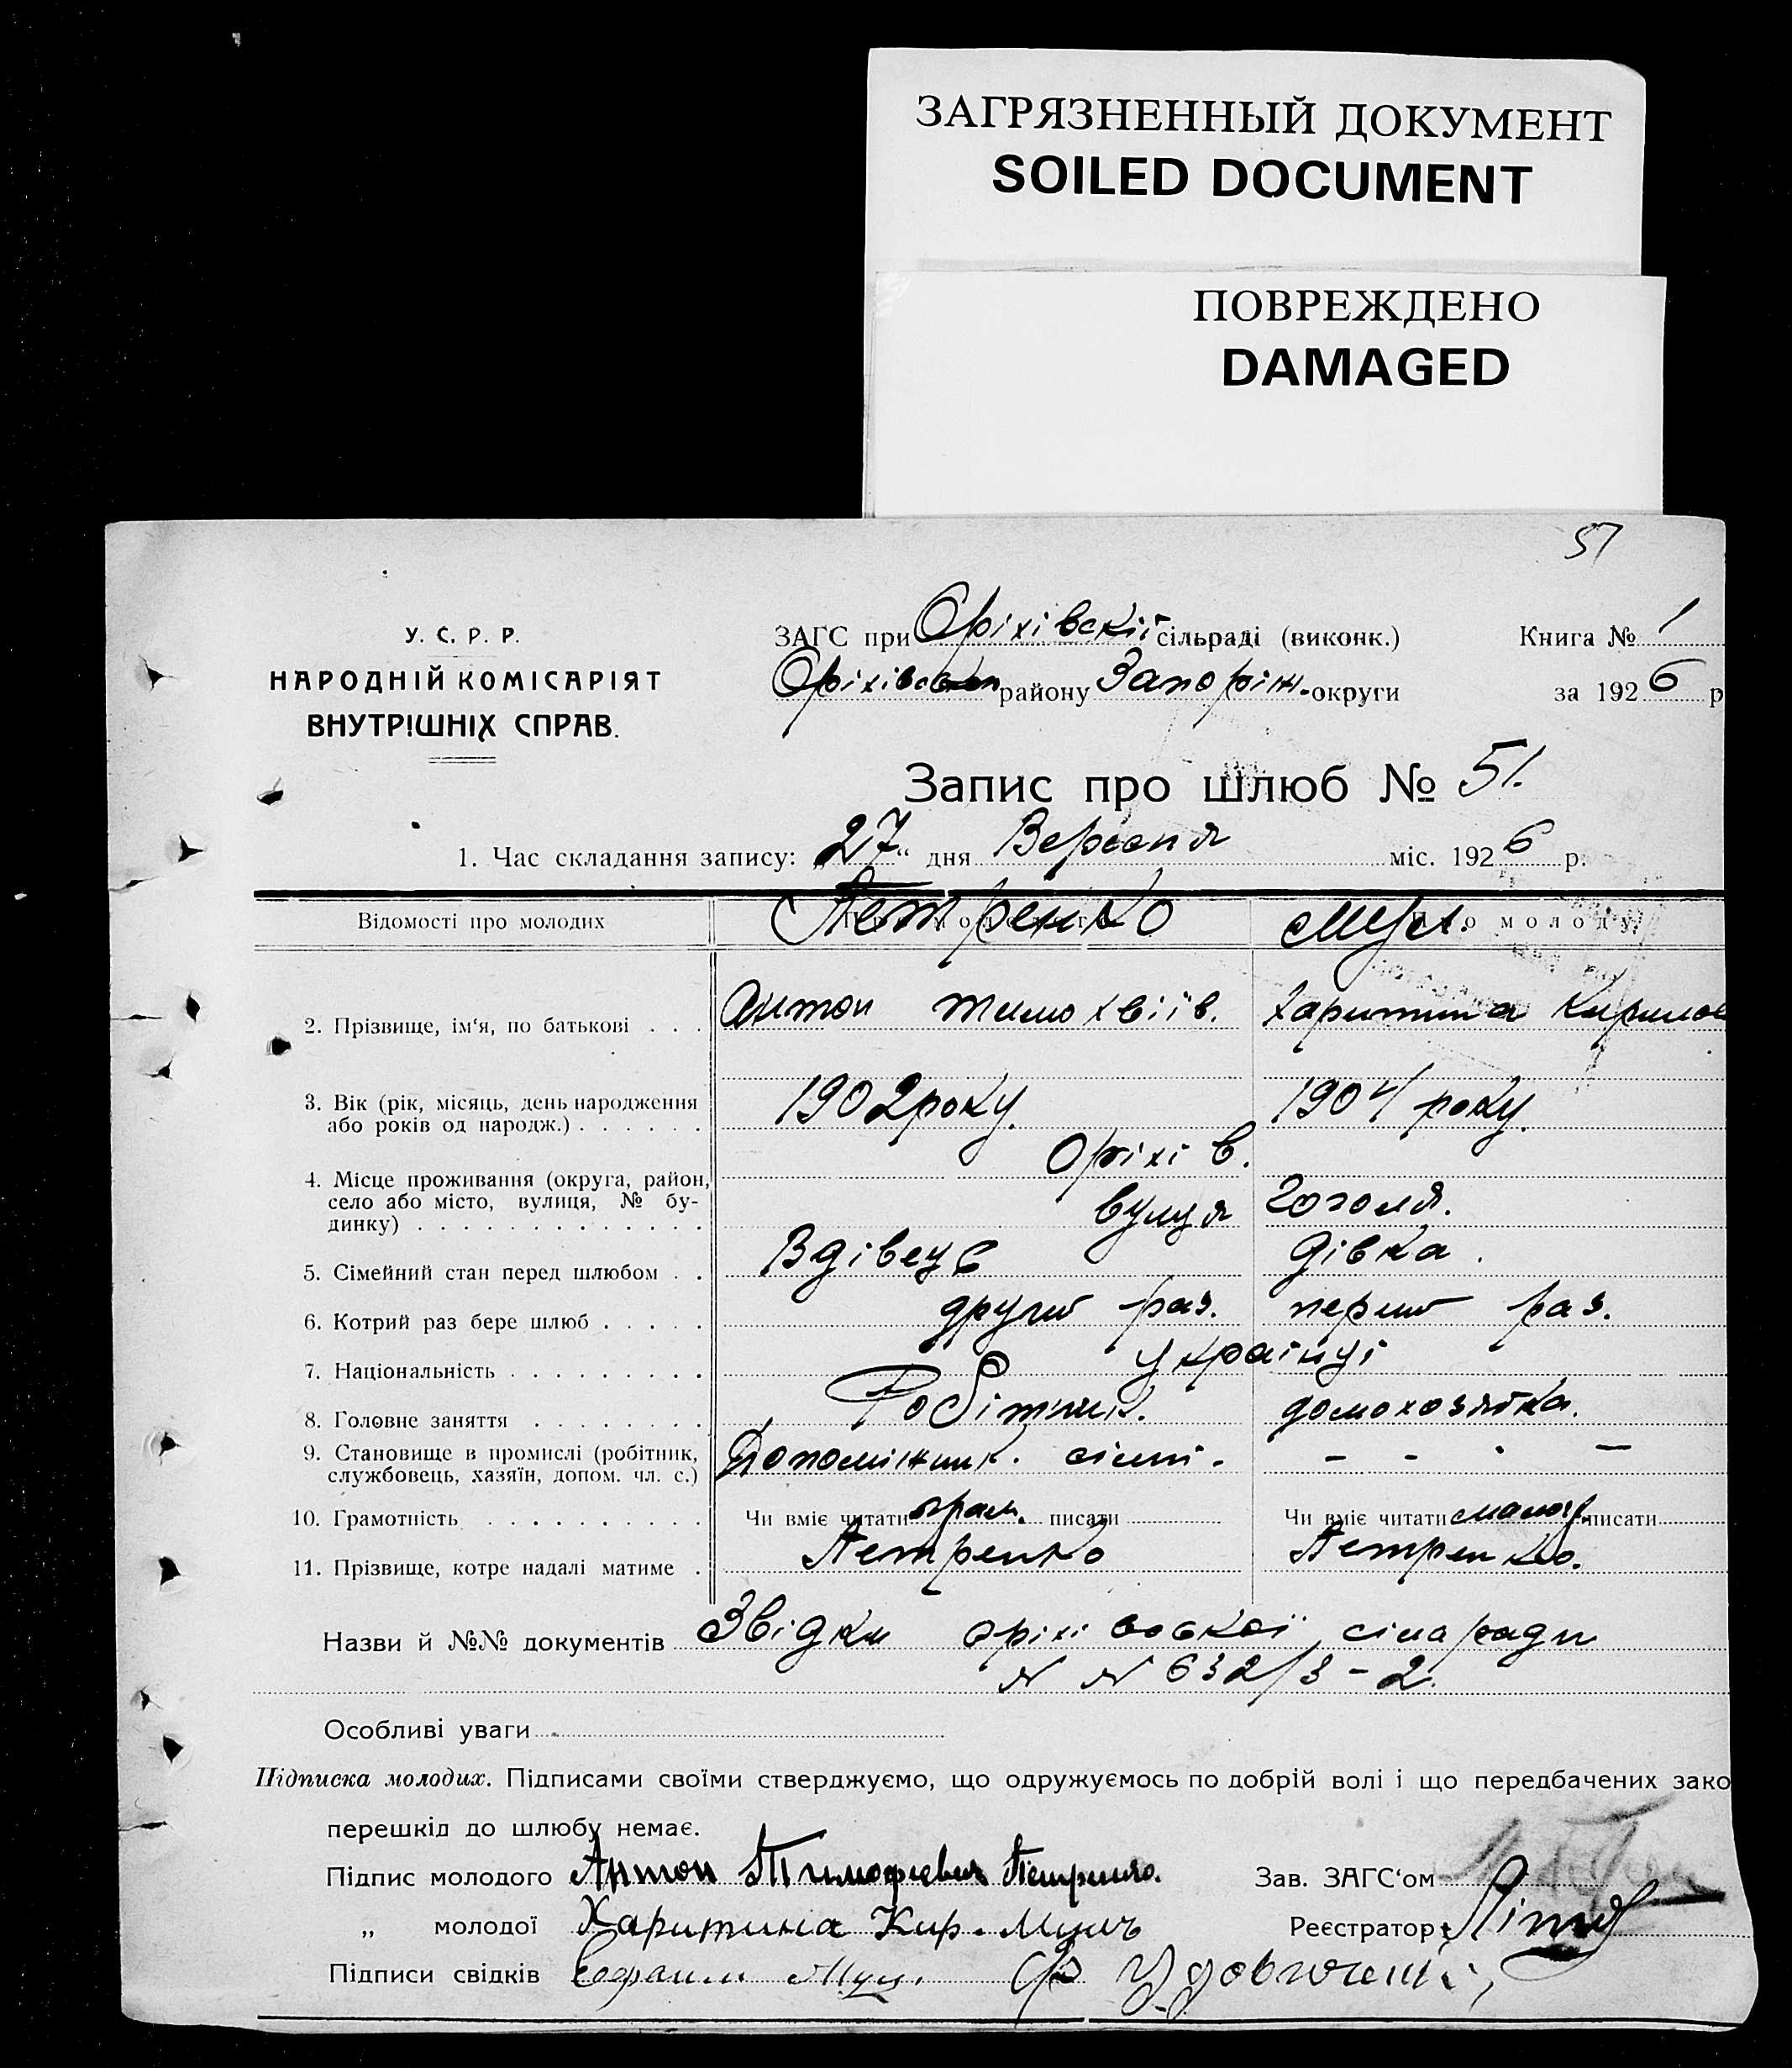 ЗАГРЯЗНЕННЫЙ ДОКУМЕНТ
SOILED DOCUMENT
ПОВРЕЖДЕНО
DAMAGED
51
У. С. Р. Р.
НАРОДНІЙ КОМІСАРІЯТ
ВНУТРІШНІХ СПРАВ.
ЗАГС при Оріхівскій сільраді (виконк.) Книга № 1
району Запоріж. округи за 1926 р
Запис про шлюб № 51.
1. Час складання запису: „27“ дня Вересня міс. 1926 р.
Відомості про молодих Петренко молоду
2. Прізвище, ім‘я, по батькові . . . Антон Тимохвіїв. Харитина Кирилов
3. Вік (рік, місяць, день народження або років од народж.) . . . . . . 1902 року. 1904 року.
4. Місце проживання (округа, район, село або місто, вулиця, № будинку) . . . . . . . . . . . . . Оріхів. вулця Гоголя.
5. Сімейний стан перед шлюбом . . Вдівець Дівка.
6. Котрий раз бере шлюб . . . . . другий раз. перший раз.
7. Національність . . . . . . . . . українці
8. Головне заняття . . . . . . . . Робітник. домохозяйка.
9. Становище в промислі (робітник, службовець, хазяїн, допом. чл. с.) Допоміжник. сімї. - - - -
10. Грамотність . . . . . . . . . . Чи вміє читати грам. писати Чи вміє читати малогр. писати
11. Прізвище, котре надалі матиме . Петренко Петренко.
Назви й №№ документів Звідки Оріхівської сільради
N N 632/3-2.
Особливі уваги
Підписка молодих. Підписами своїми стверджуємо, що одружуємось по добрій волі і що передбачених зако
перешкід до шлюбу немає.
Підпис молодого Антон Тимофіевич Петренко. Зав. ЗАГС‘ом
„ молодої Харитина Кир. Реєстратор
Підписи свідків Ефраим